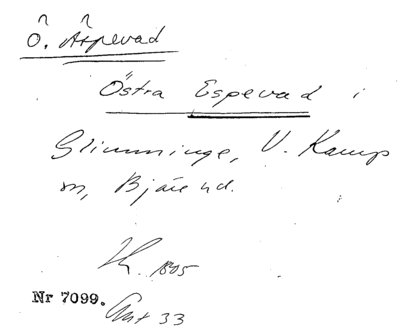 Ö. Äspevad
Östra Espevad i
Glimminge, V. Karup
sn, Bjäre hd.
1805
Nr 7099.
33